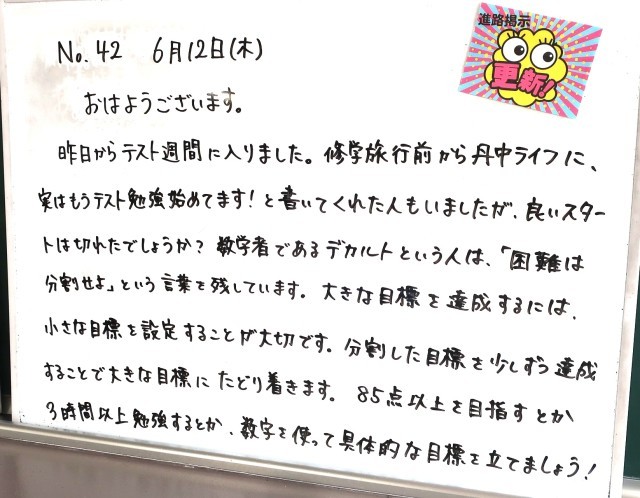 進路掲示
更新!
No.42 6月12日(木)
おはようございます。
昨日からテスト週間に入りました。修学旅行前から丹中ライフに、
実はもうテスト勉強始めてます!と書いてくれた人もいましたが、良いスター
トは切れたでしょうか?数学者であるデカルトという人は、「困難は
分割せよ」という言葉を残しています。大きな目標を達成するには、
小さな目標を設定することが大切です。分割した目標を少しずつ達成
することで大きな目標にたどり着きます。85点以上を目指すとか
3時間以上勉強するとか、数字を使って具体的な目標を立てましょう!